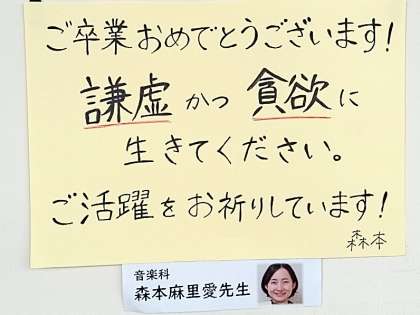 ご卒業おめでとうございます!
謙虚かつ貪欲に
生きてください。
ご活躍をお祈りしています!
森本
音楽科
森本麻里愛先生